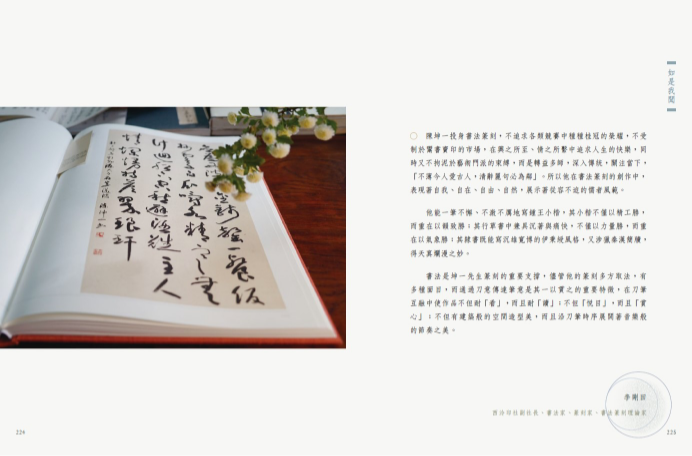 如是我聞
陳坤一投身書法篆刻，不追求各類競賽中種種桂冠的榮耀，不受
制於鬻書賣印的市場，在興之所至、情之所繫中追求人生的快樂，同
時又不拘泥於藝術門派的束縛，而是轉益多師，深入傳統，關注當下，
「不薄今人愛古人，清辭麗句必為鄰」。所以他在書法篆刻的創作中，
表現著自我、自在、自由、自然，展示著從容不迫的儒者風範。
他能一筆不懈、不激不厲地寫鍾王小楷，其小楷不僅以精工勝，
而重在以韻致勝；其行草書中兼具沉著與痛快，不僅以力量勝，而重
在以氣象勝；其隸書既能寫沉雄寬博的伊秉綬風格，又涉獵秦漢簡牘，
得天真爛漫之妙。
書法是坤一先生篆刻的重要支撐，儘管他的篆刻多方取法，有
多種面目，而通過刀意傳達筆意是其一以貫之的重要特徵，在刀筆
互融中使作品不但耐「看」，而且耐「讀」；不但「悅目」，而且「賞
心」；不但有建築般的空間造型美，而且沿刀筆時序展開著音樂般
的節奏之美。
李剛田
西泠印社副社長、書法家、篆刻家、書法篆刻理論家
224
225